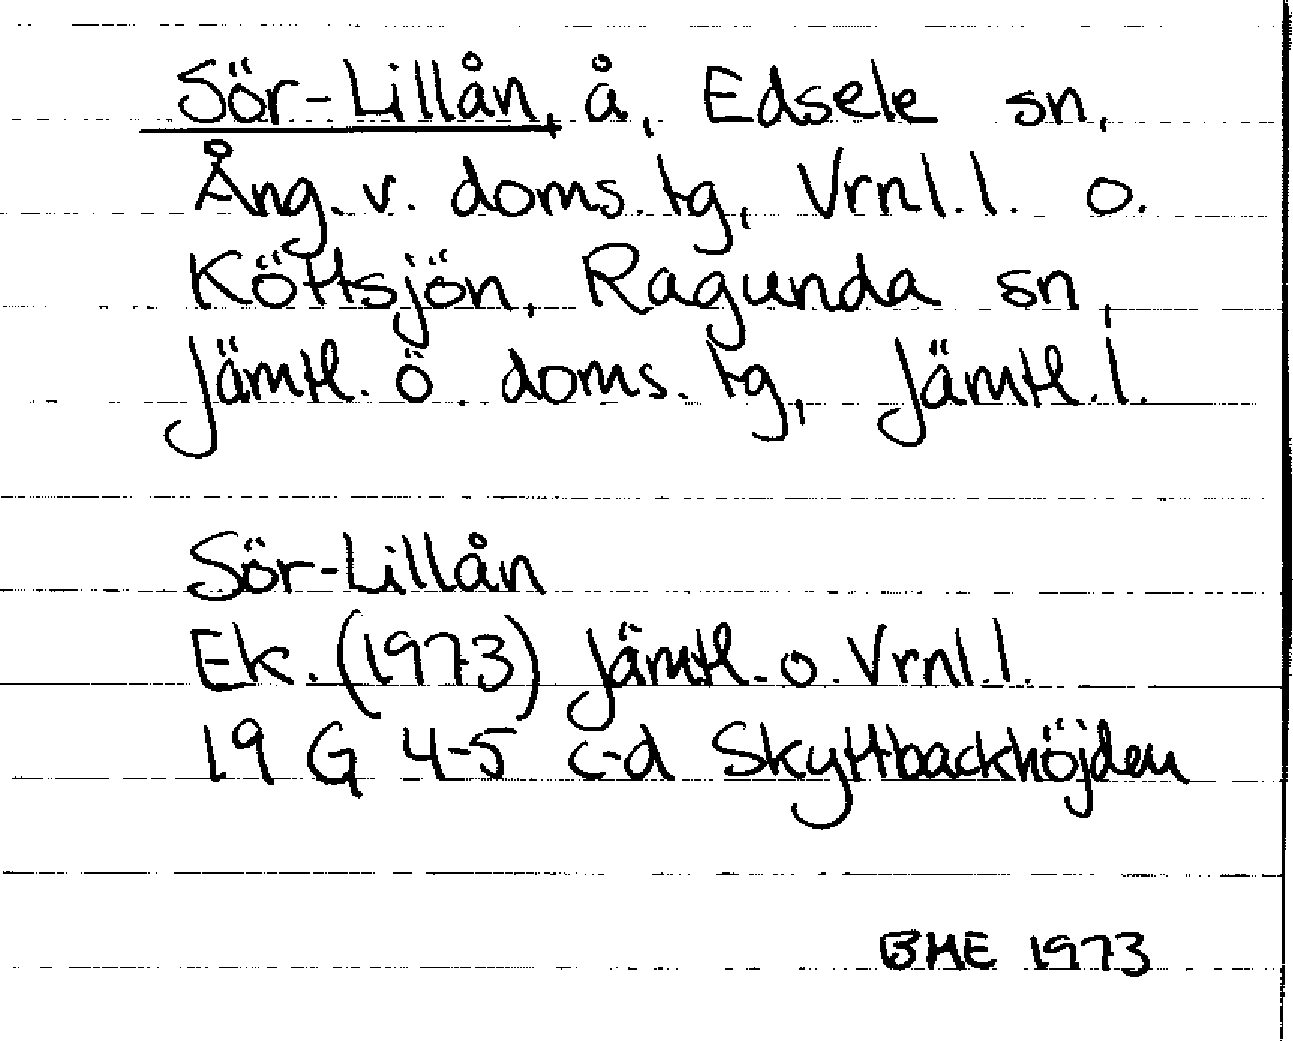 Sör-Lillån, å, Edsele sn,
Ång. v. doms. tg, Vrnl. l. o.
Köttsjön, Ragunda sn,
Jämtl. ö. doms. tg, Jämtl. l.
Sör-Lillån
Ek. (1973) Jämtl. o. Vrnl. l.
19 G 4-5 c-d Skyttbackhöjden
BME 1973